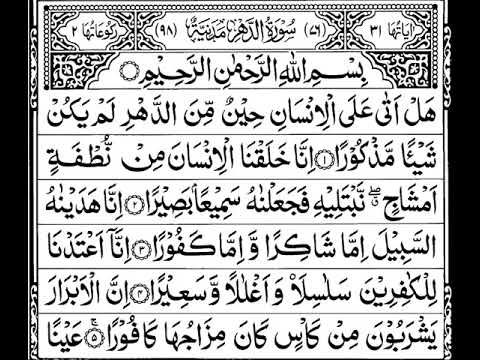 اٰيَاتُهَا ٣١ (٧٦) سُوْرَةُ الدَّهْرِ مَدَنِيَّةٌ (٩٨) رُكُوْعَاتُهَا ٢
بِسْمِ اللّٰهِ الرَّحْمٰنِ الرَّحِيْمِ ○
هَلْ اَتٰى عَلَى الْاِنْسَانِ حِيْنٌ مِّنَ الدَّهْرِ لَمْ يَكُنْ
شَيْئًا مَّذْكُوْرًا ۝١ اِنَّا خَلَقْنَا الْاِنْسَانَ مِنْ نُّطْفَةٍ
اَمْشَاجٍ ۖۗ نَّبْتَلِيْهِ فَجَعَلْنٰهُ سَمِيْعًۢا بَصِيْرًا ۝٢ اِنَّا هَدَيْنٰهُ
السَّبِيْلَ اِمَّا شَاكِرًا وَّ اِمَّا كَفُوْرًا ۝٣ اِنَّاۤ اَعْتَدْنَا
لِلْكٰفِرِيْنَ سَلٰسِلَا۟ وَ اَغْلٰلًا وَّ سَعِيْرًا ۝٤ اِنَّ الْاَبْرَارَ
يَشْرَبُوْنَ مِنْ كَاْسٍ كَانَ مِزَاجُهَا كَافُوْرًا ۝٥ۚ عَيْنًا